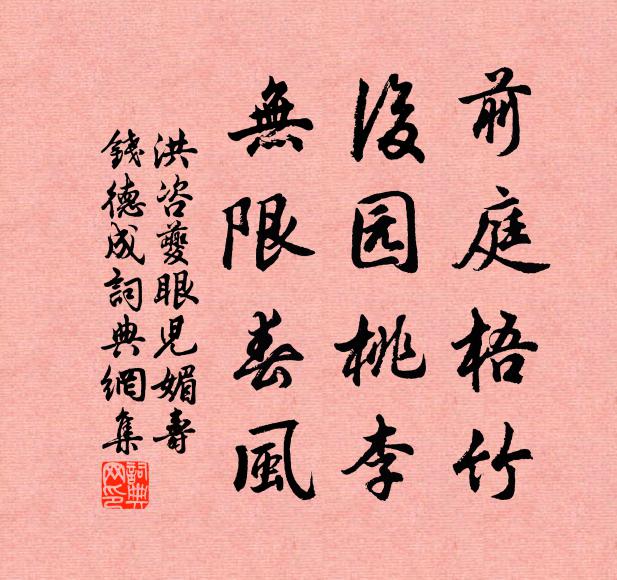 前庭梧竹
後园桃李
無限春風
洪咨夔眼児媚壽
錢德成詞典網集
詞典网印